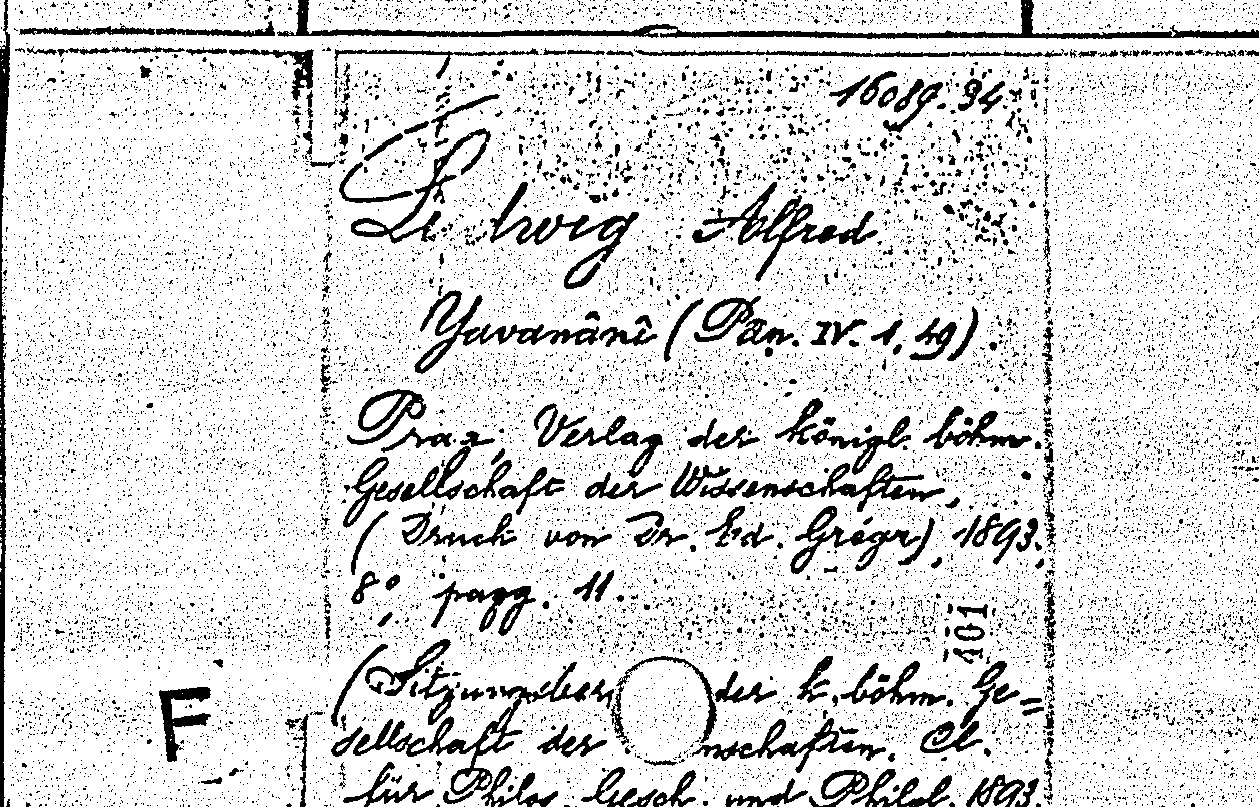 16089.94
Ludwig Alfred
Yavanânî (Pān. IV. 1, 49).
Prag, Verlag der königl. böhm.
Gesellschaft der Wissenschaften,
(Druck von Dr. Ed. Grégr), 1893.
8°, pagg. 11.
101
(Sitzungsber der k. böhm. Ge=
F
sellschaft der nschaften. Cl.
für Philos. Gesch. und Philol. 1893.